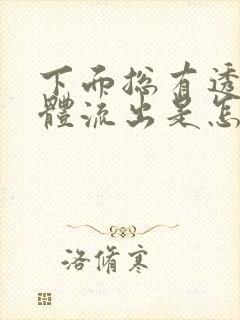 下面总有透
體流出是怎
洛脩寒